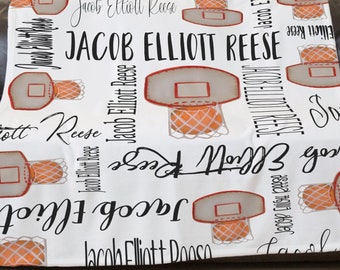 Jacob Elliott Reese
Jacob Elliott Reese
JACOB ELLIOTT REESE
Jacob Elliott Reese
JACOB ELLIOTT REESE
Elliott Reese
Jacob Elliott Reese
Jacob Elliott Reese
Jacob
Jacob Elliott Reese
Jacob Elliott
Jacob Elliott Reese
Jacob